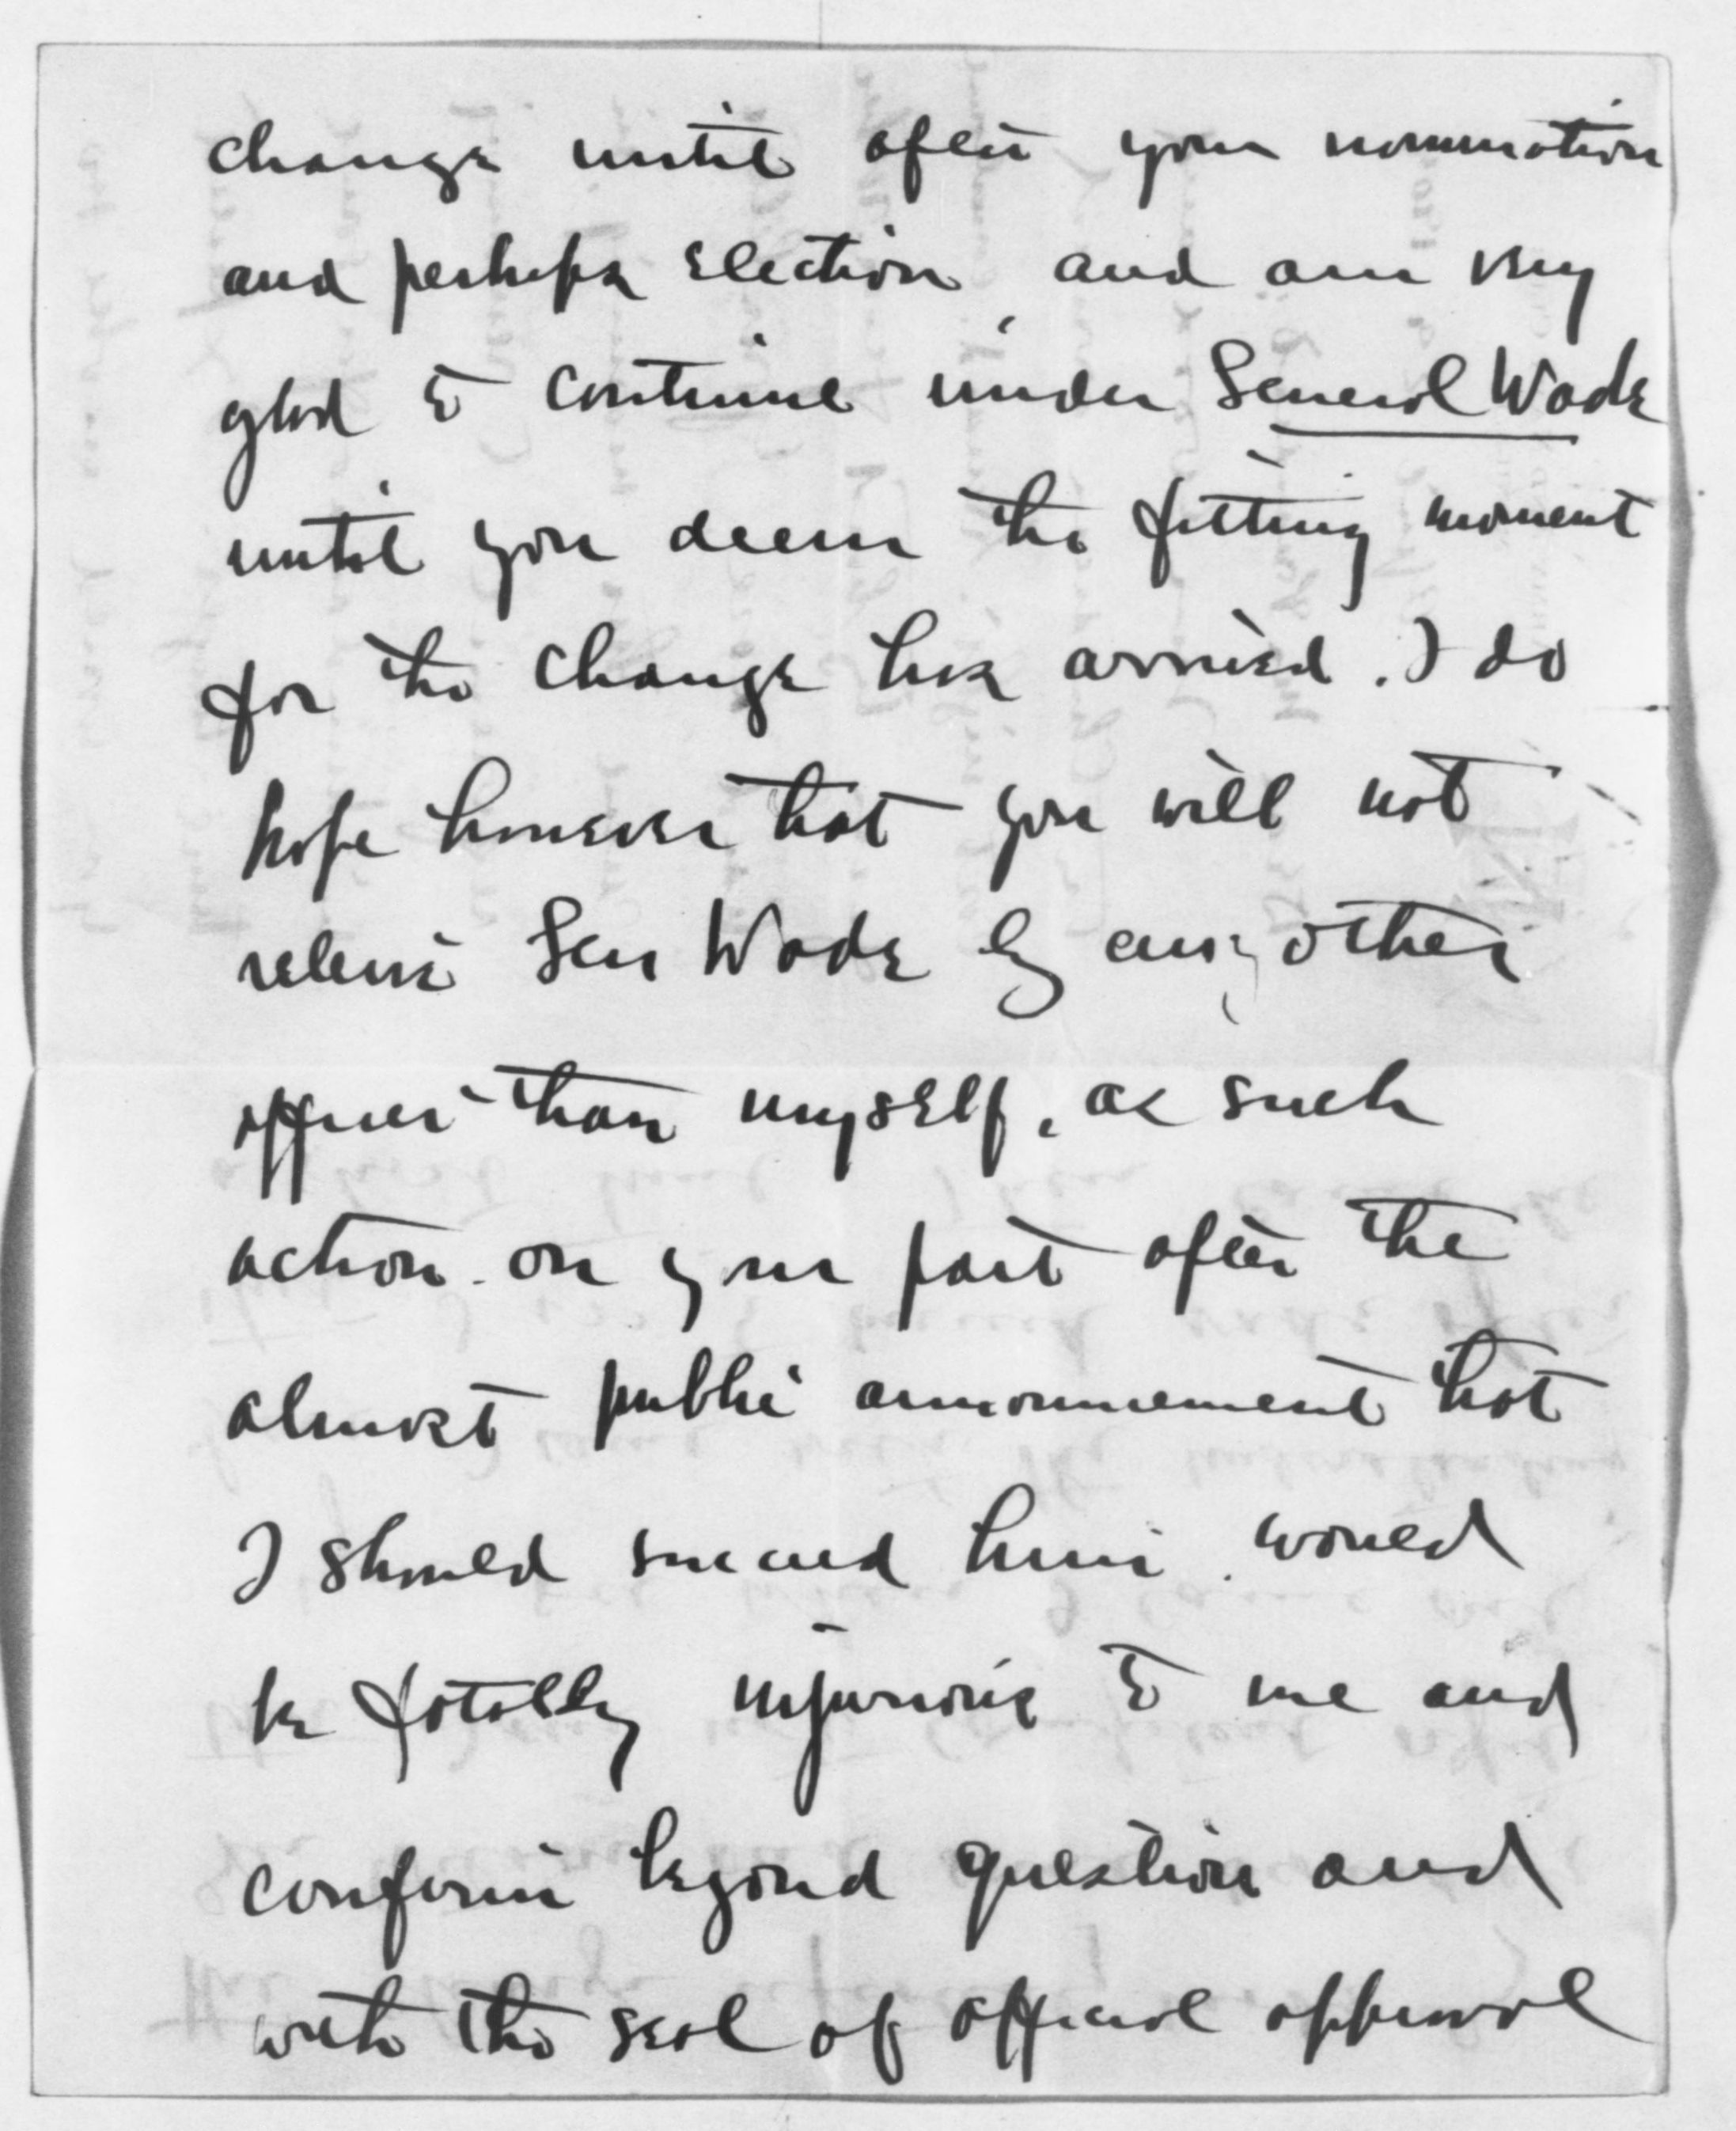 change until after your nomination
and perhaps election, and am very
glad to continue under General Wade
until you deem the fitting moment
for the change has arrived. I do
hope however that you will not
relieve Gen Wade by any other
officer than myself, as such
action on your part after the
almost public announcement that
I should succeed him would
be fatally injurious to me and
confirm beyond question and
with the seal of official approval